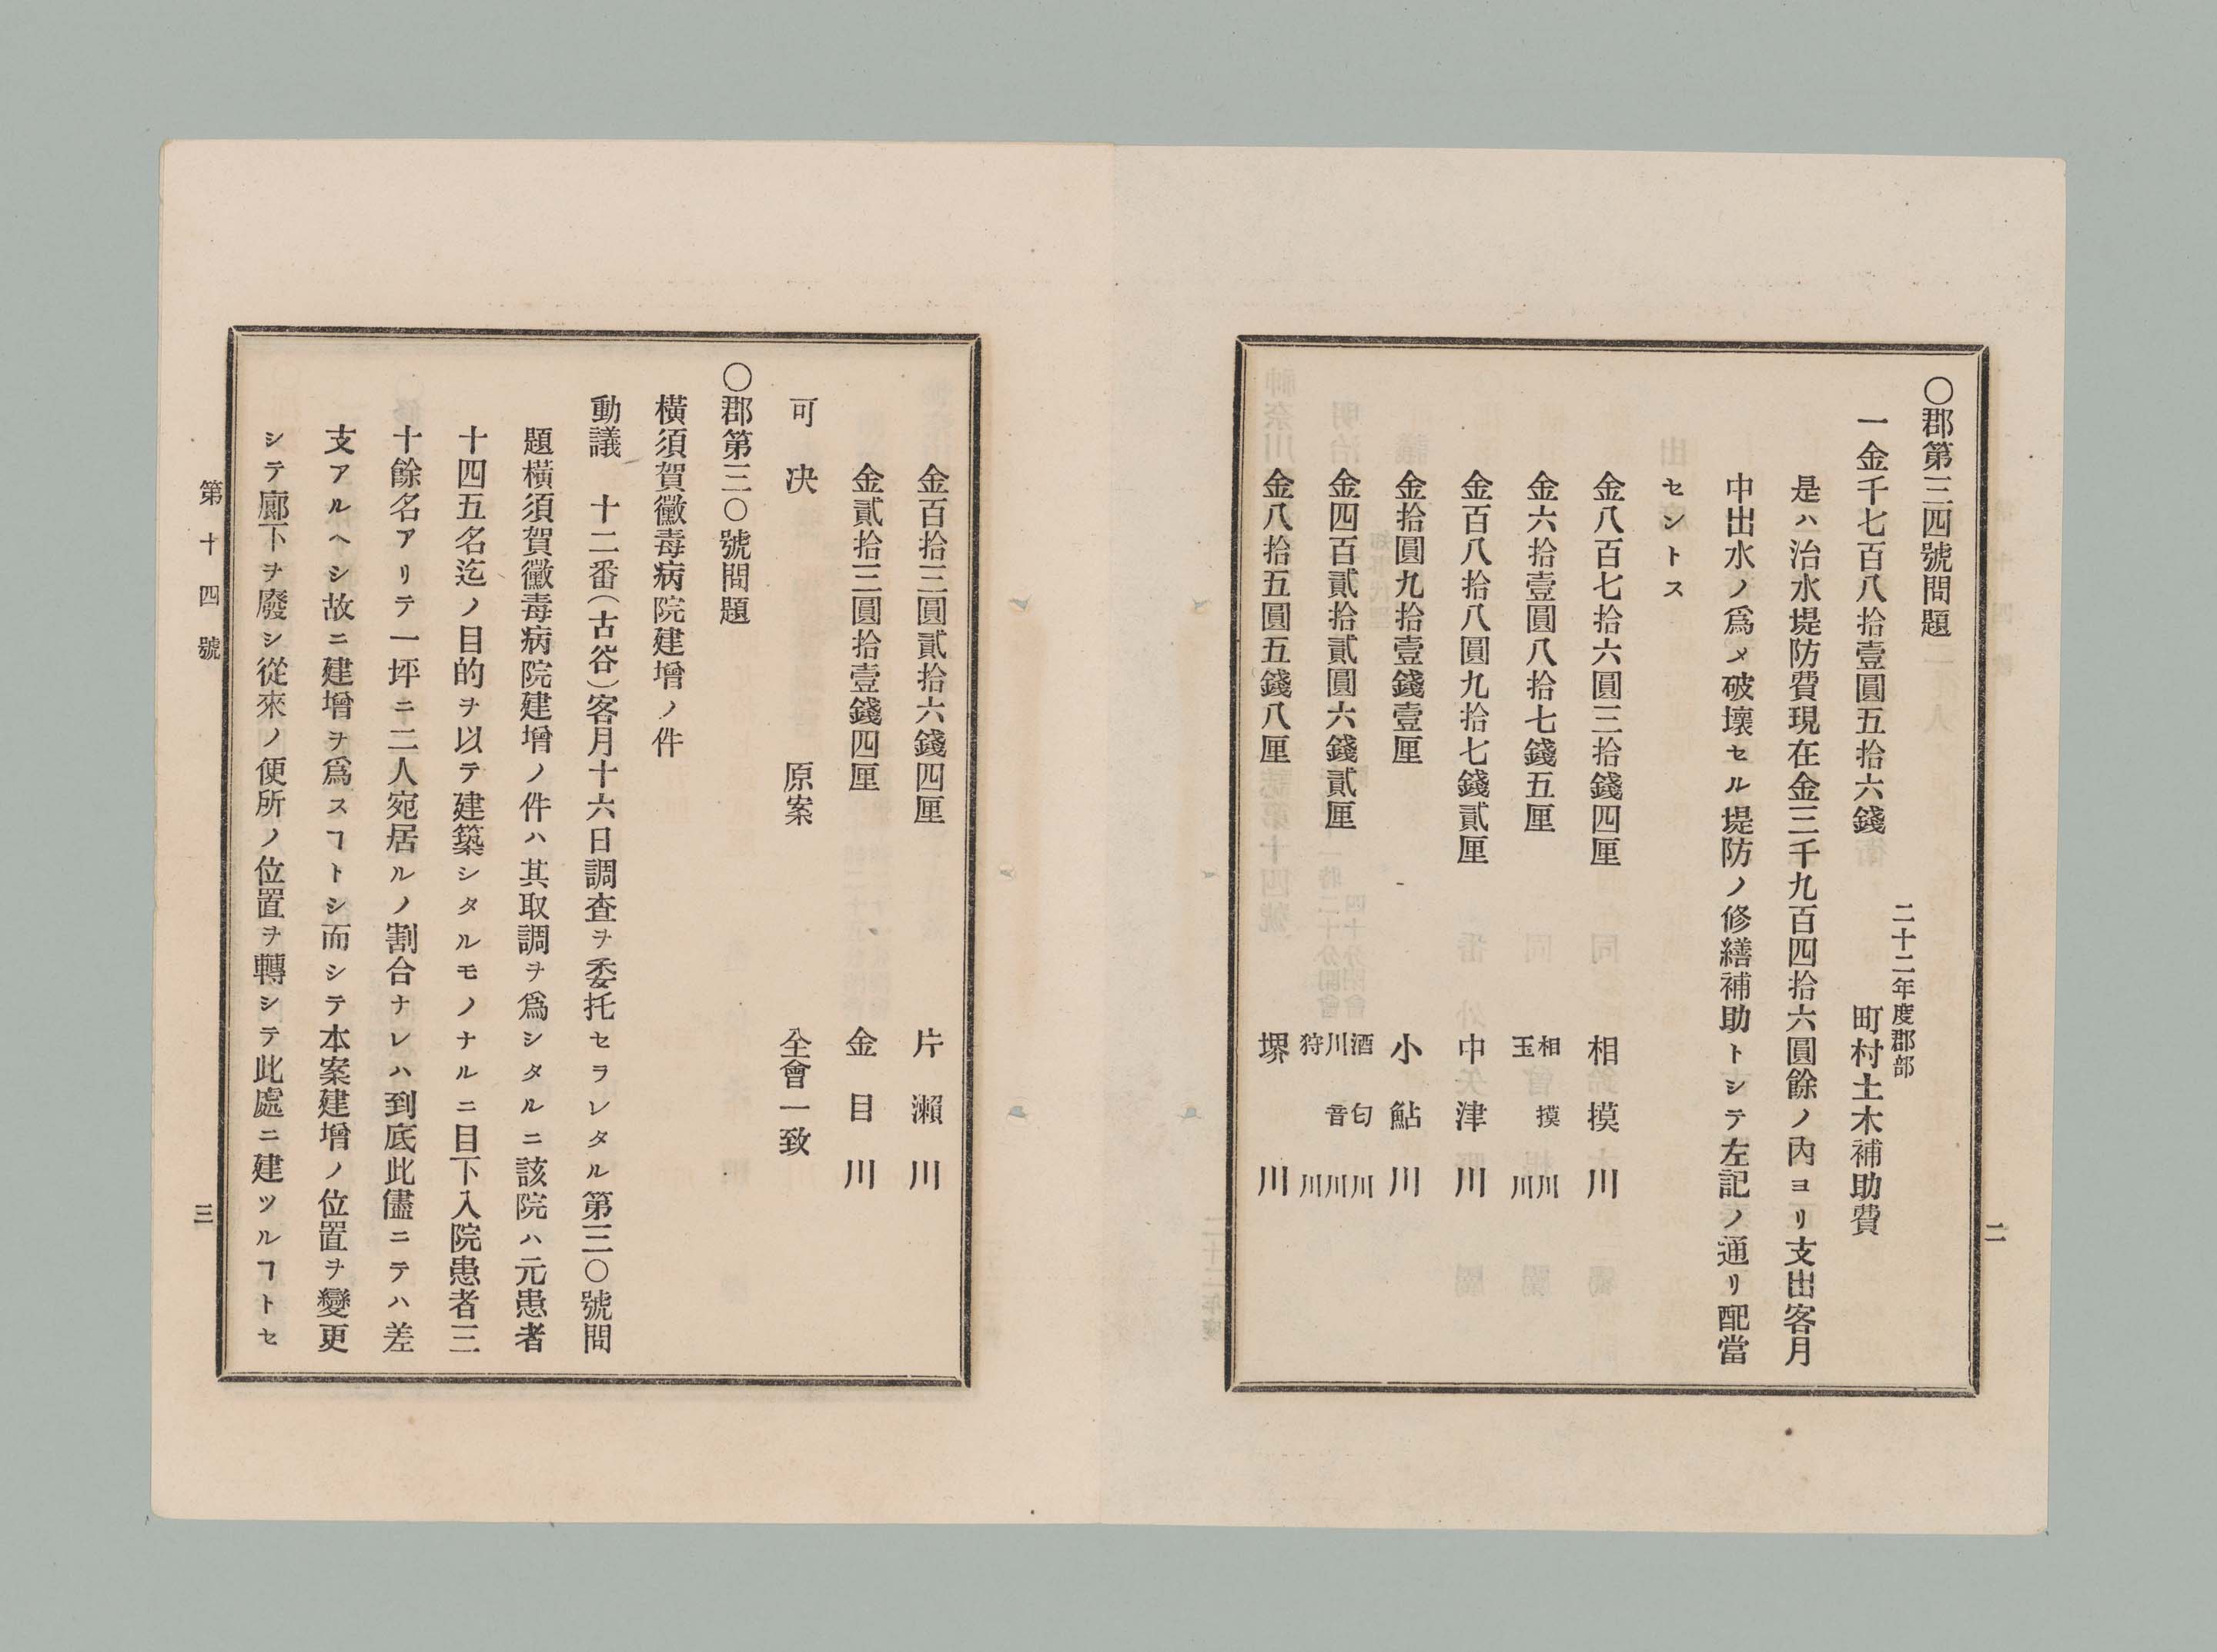 二
〇郡第三四號問題
二十二年度郡部
一金千七百八拾壹圓五拾六錢　町村土木補助費
是ハ治水堤防費現在金三千九百四拾六圓餘ノ內ヨリ支出客月
中出水ノ爲メ破壞セル堤防ノ修繕補助トシテ左記ノ通リ配當
セントス
金八百七拾六圓三拾錢四厘　相摸川
金六拾壹圓八拾七錢五厘　相摸川　玉曾川
金百八拾八圓九拾七錢貳厘　中津川
金拾圓九拾壹錢壹厘　小鮎川
金四百貳拾貳圓六錢貳厘　酒匂川　川音川　狩川
金八拾五圓五錢八厘　堺川
金百拾三圓貳拾六錢四厘　片瀨川
金貳拾三圓拾壹錢四厘　金目川
可決　原案　全會一致
〇郡第三〇號問題
橫須賀黴毒病院建增ノ件
動議　十二番（古谷）客月十六日調査ヲ委托セラレタル第三〇號問
題橫須賀黴毒病院建增ノ件ハ其取調ヲ爲シタルニ該院ハ元患者
十四五名迄ノ目的ヲ以テ建築シタルモノナルニ目下入院患者三
十餘名アリテ一坪ニ二人宛居ルノ割合ナレハ到底此儘ニテハ差
支アルヘシ故ニ建增ヲ爲スヿトシ而シテ本案建增ノ位置ヲ變更
シテ廊下ヲ廢シ從來ノ便所ノ位置ヲ轉シテ此處ニ建ツルヿトセ
第十四號
三